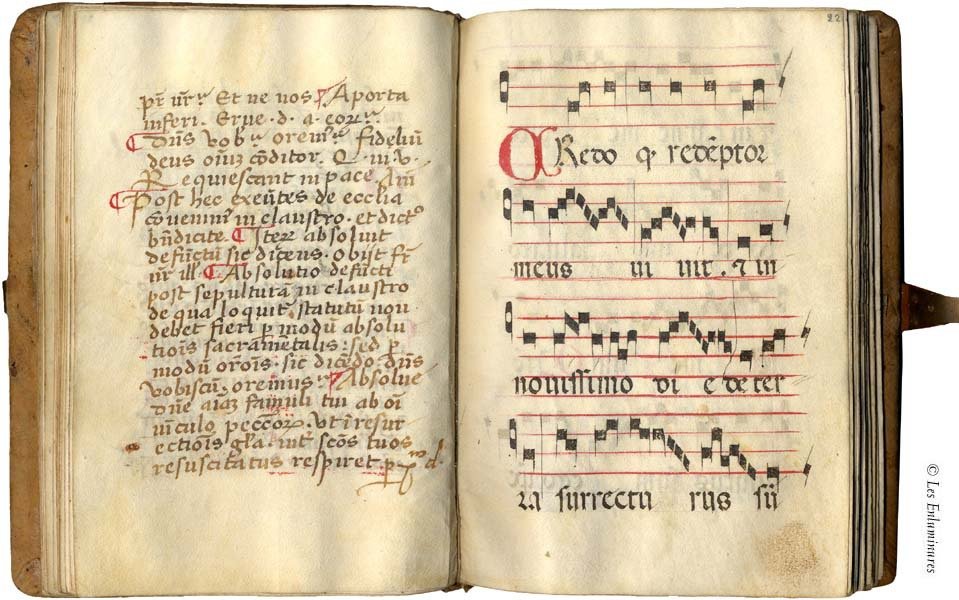 pr̄ nr̄. Et ne nos. A porta
inferi. Erue. d. a. eorꝝ.
Dn̄s vob. oremꝰ. fideliū
deus oīuꝫ cōditor. Q. iii v.
Requiescant in pace Am̄
Post hec exeūtes de ecclīa
cōueniūt in claustro. et dicto
bn̄dicite. Iterꝝ absoluit
defunctū sic dicens. Obijt fr̄
nr̄ ill. Absolutio defūcti
post sepulturā in claustro
de qua loquitᷣ statutū non
debet fieri ꝑ modū absolu
tiōis sacramētalis: sed ꝑ
modū orōis. sic dicēdo. dn̄s
vobiscū. oremus. Absolue
dn̄e aīaꝫ famuli tui ab oī
uīculo peccōꝝ. vt ī resur
ectiōis gl̄a. int̄ scōs tuos
resuscitatus respiret. ꝑ d.
22
CRedo ꝙ redēptor
meus ui uit. ⁊ in
nouissimo di e de ter
ra surrectu rus sū
© Les Enluminures